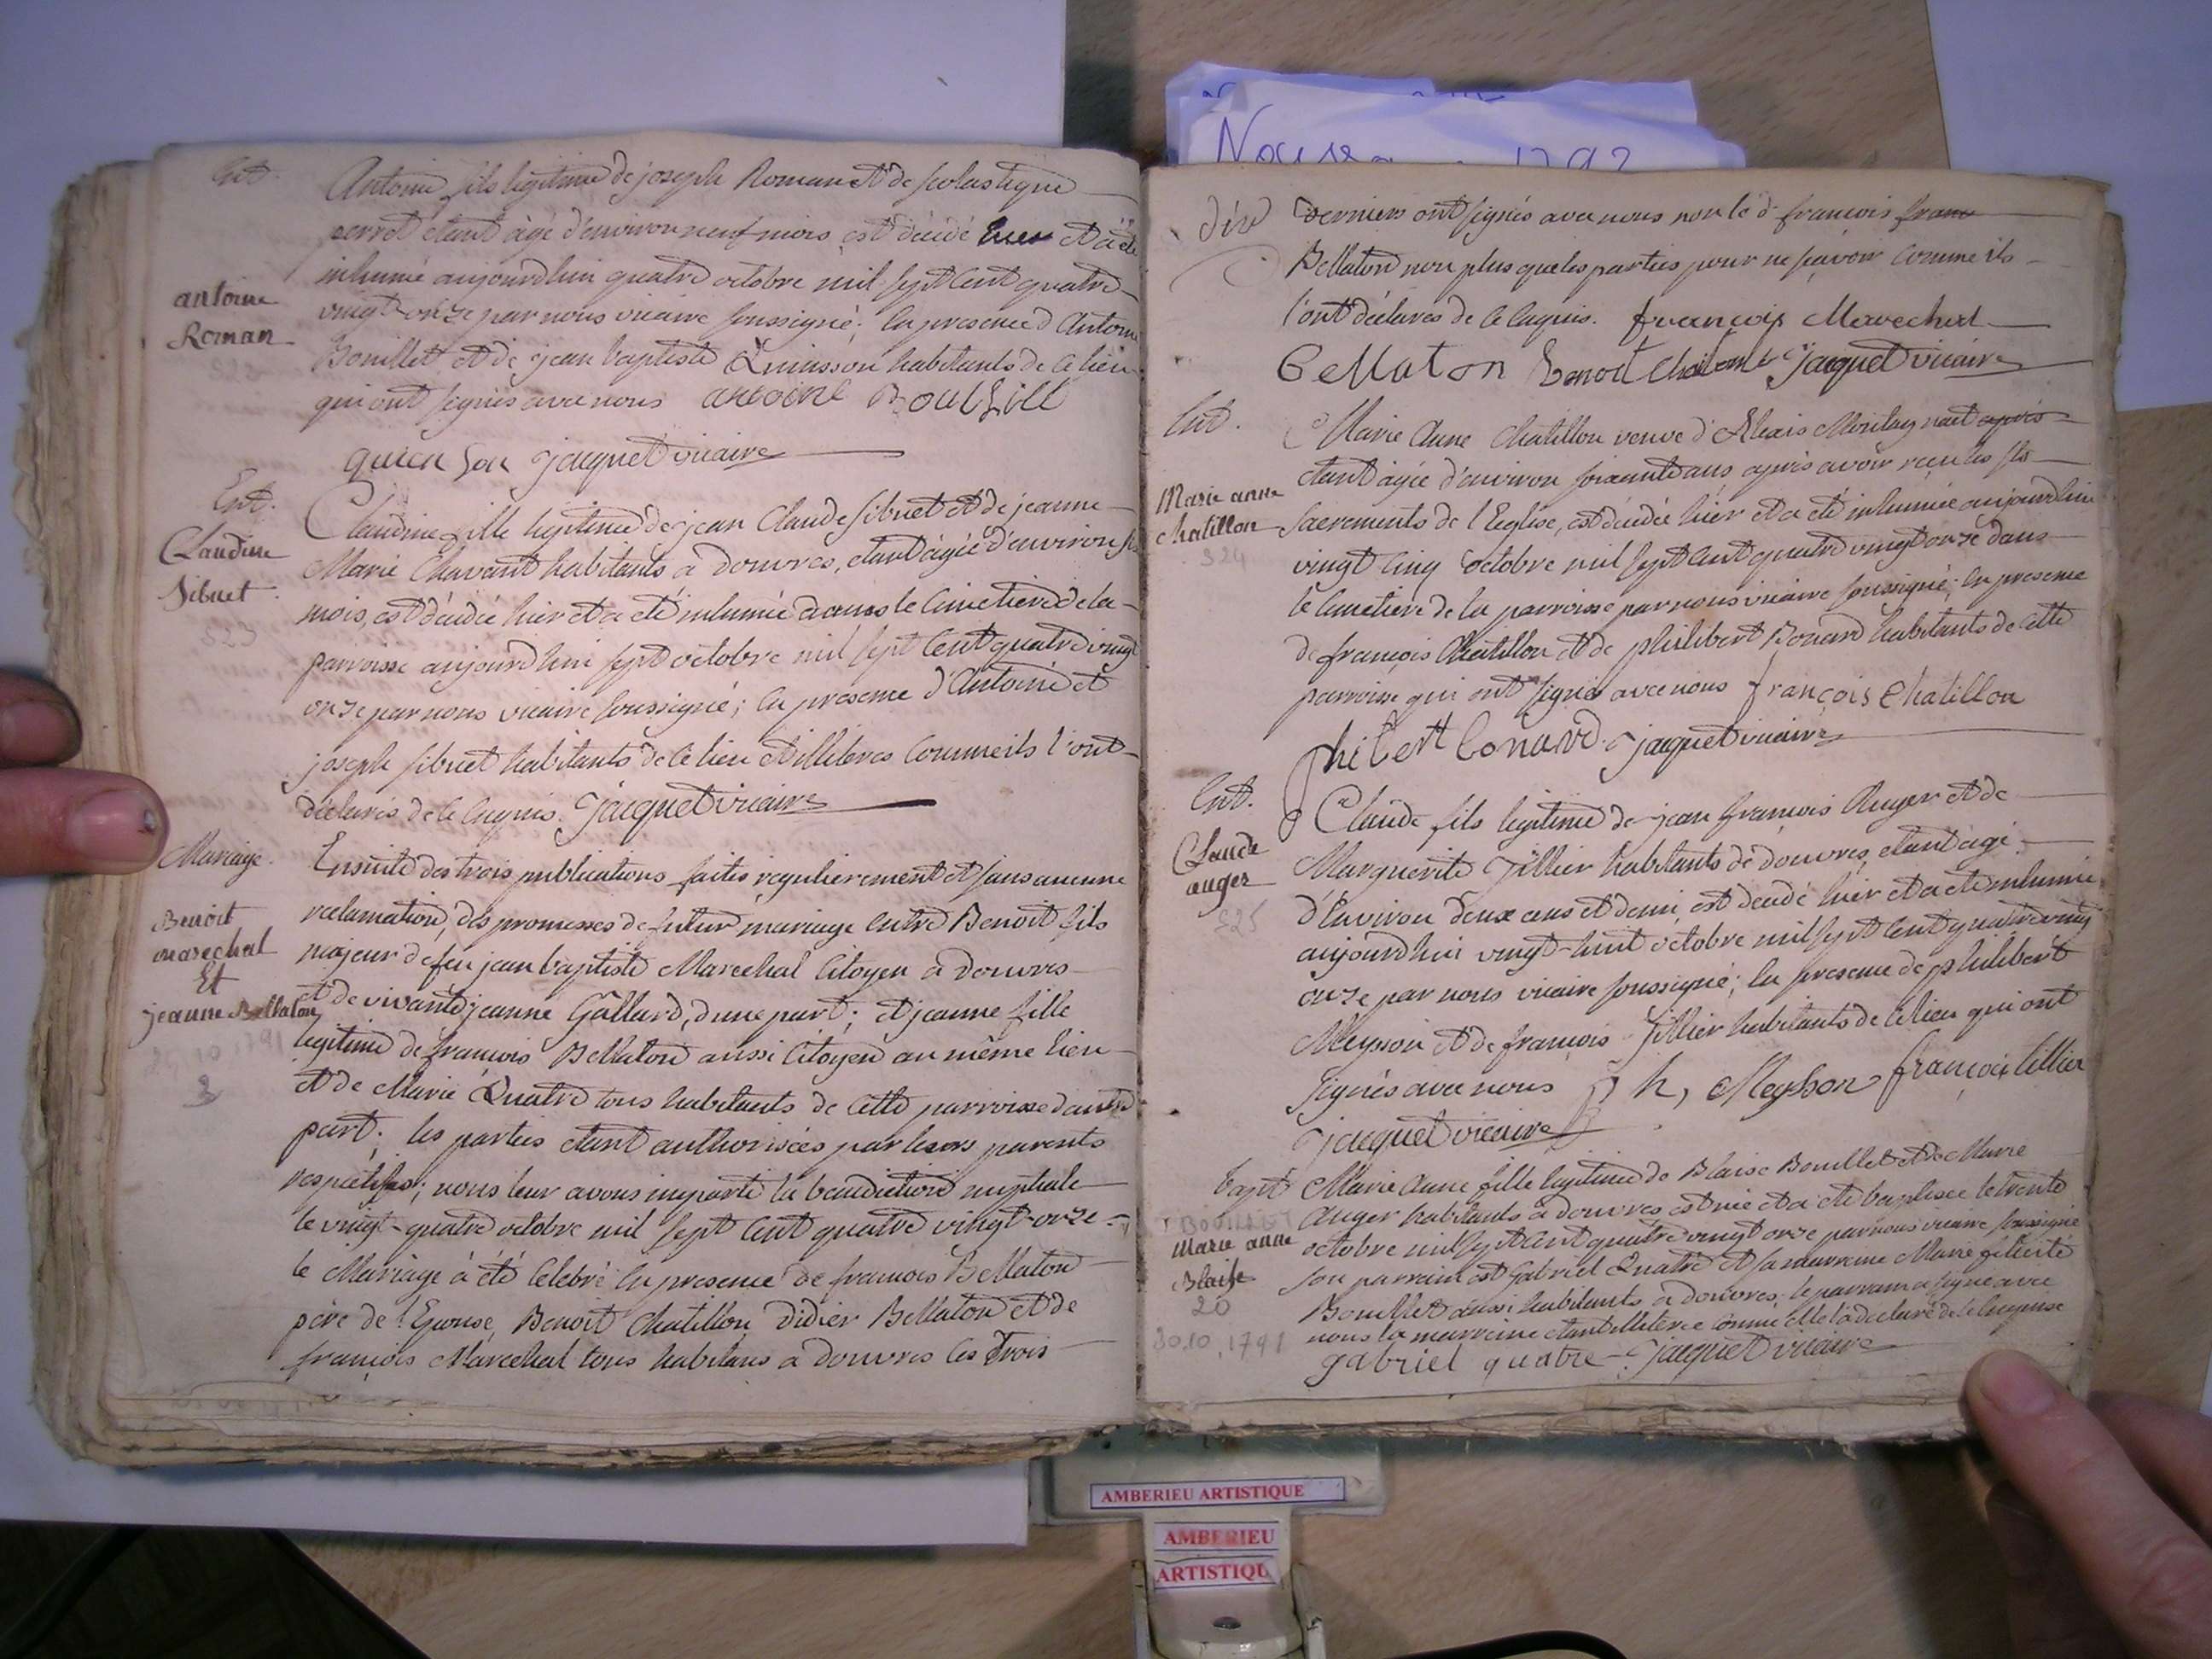 Ent.
Antoine fils legitime de joseph Roman et de scolastique
perret étant âgé d'environ neuf mois est décidé hier et a été
inhumé aujourdhui quatre octobre mil sept Cent quatre
vingt-onze par nous vicaire soussigné; En presence d'Antoine
Bouillet et de jean baptiste Quinsson habitants de ce lieu
qui ont signés avec nous antoine Boullill
quien son jacquet vicaire
antoine
Roman
Ent.
Claudine
Sibuet
523
Claudine fille legitime de jean Claude sibuet et de jeanne
Marie Chavant habitants a Douvres, étant âgée d'environ six
mois, est décidée hier et a été inhumée dans le Cimetiere de la
parroisse aujourdhui sept octobre mil sept Cent quatre vingt
onze par nous vicaire soussigné; En presence d'Antoine et
joseph sibuet habitants de ce lieu et illiteres Comme ils l'ont
déclarés de ce Enquis. jacquet vicaire
Mariage.
Benoit
marechal
Et
jeanne Bellaton
25.10.1791
Ensuite des trois publications faites regulierement et sans aucune
reclamation, des promesses de futur mariage entre Benoit fils
majeur de feu jean baptiste Marechal Citoyen a Douvres
et de vivante jeanne Gallard, d'une part; et jeanne fille
legitime de francois Bellaton aussi Citoyen au même lieu
et de Marie Quatre tous habitants de cette parroisse d'autre
part; les parties étant authorisées par leurs parents
respectifs; nous leur avons imparti la benediction nuptiale
le vingt-quatre octobre mil sept Cent quatre vingt-onze
le Mariage à été Celebré En presence de francois Bellaton
père de l'Epouse, Benoit Chatillon, Didier Bellaton et de
francois Marechal tous habitans a Douvres les Trois
derniers ont signés avec nous non le d. francois franc
Bellaton non plus que les parties pour ne sçavoir comme ils
l'ont déclarés de ce Enquis. francois Marechal
Bellaton Benoit Chatillon jacquet vicaire
Ent.
Marie anne
chatillon
524
Marie Anne Chatillon veuve d'Alexis Montagnat après
étant agée d'environ soixante ans, après avoir reçu les sts
Sacrements de l'Eglise, est décidée hier et a été inhumée aujourdhui
vingt Cinq octobre mil sept Cent quatre vingt onze dans
le Cimetiere de la parroisse par nous vicaire soussigné; En presence
de françois Chatillon et de philibert Bonard habitants de Cette
parroisse qui ont signés avec nous françois Chatillon
Philbert Bonard. jacquet vicaire
Ent.
Claude
auger
525
Claude fils legitime de jean françois Auger et de
Marguerite Tillier habitants de douvres, étant agé
d'Environ deux ans et demi, est decidé hier et a été inhumé
aujourdhui vingt-huit octobre mil sept Cent quatre vingt
onze par nous vicaire soussigné; En presence de philibert
Meysson et de francois Tillier habitants de ce lieu qui ont
signés avec nous Ph, Meysson françois tillier
jacquet vicaire
bapt
BOUILLET
Marie anne
Blaise
20
30.10.1791
Marie Anne fille legitime de Blaise Bouillet et de Marie
Auger habitants a douvres est née et a été baptisée le trente
octobre mil sept Cent quatre vingt onze par nous vicaire soussigné
son parrain est Gabriel Quatre et sa marraine Marie félicité
Bouillet aussi habitants a douvres; le parrain a signé avec
nous la marraine étant illiterée comme elle l'a declaré de ce Enquise
gabriel quatre jacquet vicaire
AMBERIEU ARTISTIQUE
AMBERIEU
ARTISTIQU